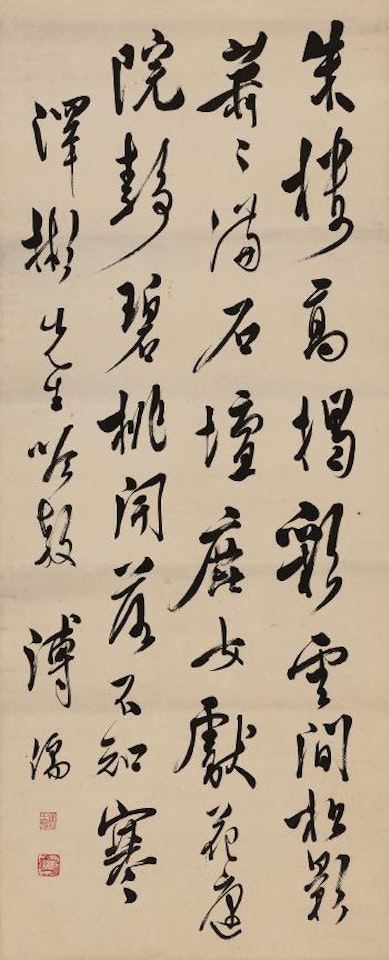 朱樓高揭彩雲間松影
蕭〻滿石壇鹿女獻花庭
院靜碧桃開落不知寒
澤彬先生吟教 溥儒